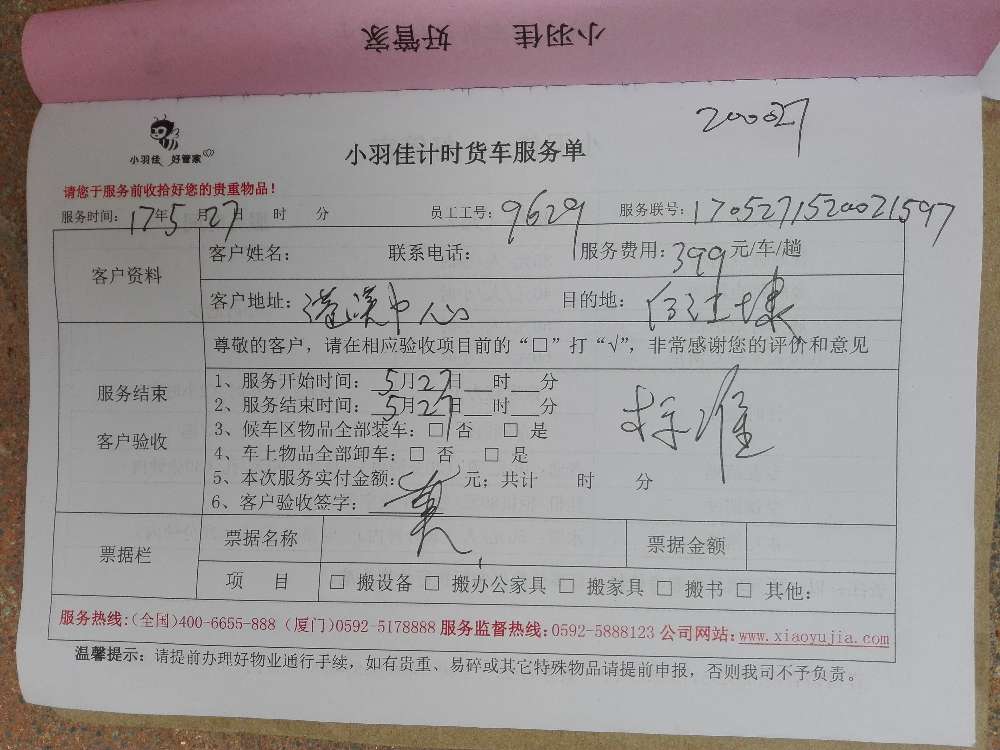 小羽佳 好管家
200027
小羽佳 好管家
小羽佳计时货车服务单
请您于服务前收拾好您的贵重物品！
服务时间：17年5月27日 时 分 员工工号：9629 服务联号：1705271520021597
客户资料
客户姓名： 联系电话： 服务费用：399元/车/趟
客户地址：莲溪中心 目的地：
尊敬的客户，请在相应验收项目前的“□”打“√”，非常感谢您的评价和意见
服务结束
客户验收
1、服务开始时间：5月27日___时___分
2、服务结束时间：5月27日___时___分
3、候车区物品全部装车：□ 否 □ 是
4、车上物品全部卸车：□ 否 □ 是
5、本次服务实付金额： 元；共计 时 分
6、客户验收签字：
票据栏
票据名称 票据金额
项 目 □ 搬设备 □ 搬办公家具 □ 搬家具 □ 搬书 □ 其他：
服务热线:(全国)400-6655-888 (厦门)0592-5178888 服务监督热线:0592-5888123 公司网站:www.xiaoyujia.com
温馨提示：请提前办理好物业通行手续，如有贵重、易碎或其它特殊物品请提前申报，否则我司不予负责。